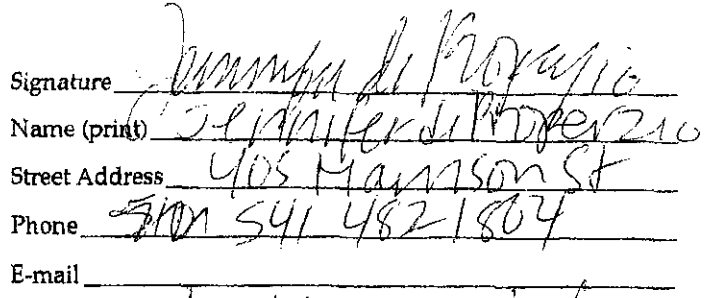 Signature Jennifer di Properzio
Name (print) Jennifer di Properzio
Street Address 405 Harrison St
Phone 541 482 1864
E-mail